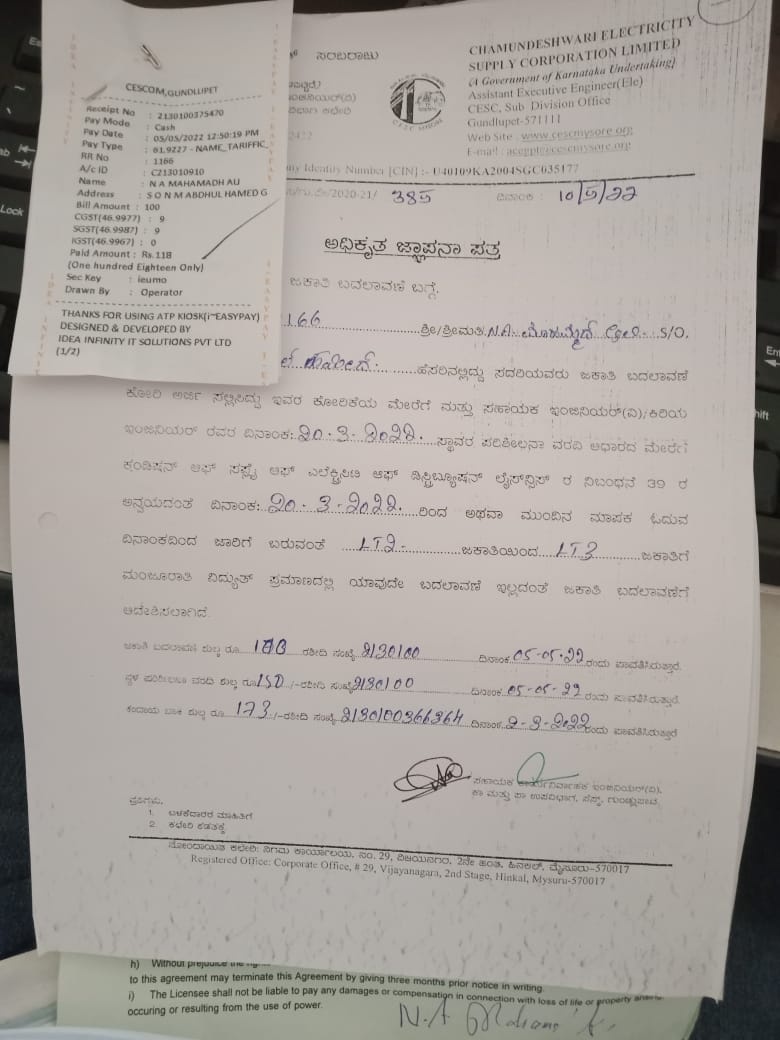 CESCOM,GUNDLUPET
Receipt No : 2130100375470
Pay Mode : Cash
Pay Date : 05/05/2022 12:50:19 PM
Pay Type : 61.9227 - NAME_TARIFFIC_
RR No : 1166
A/c ID : C213010910
Name : N A MAHAMADH ALI
Address : S O N M ABDHUL HAMED G
Bill Amount : 100
CGST(46.9977) : 9
SGST(46.9987) : 9
IGST(46.9967) : 0
Paid Amount : Rs.118
(One hundred Eighteen Only)
Sec Key : ieumo
Drawn By : Operator
THANKS FOR USING ATP KIOSK(i-EASYPAY)
DESIGNED & DEVELOPED BY
IDEA INFINITY IT SOLUTIONS PVT LTD
(1/2)
ಸರಬರಾಜು
CHAMUNDESHWARI ELECTRICITY
SUPPLY CORPORATION LIMITED
(A Government of Karnataka Undertaking)
Assistant Executive Engineer(Ele)
CESC, Sub Division Office
Gundlupet-571111
Web Site : www.cescmysore.org
E-mail :
Identity Number [CIN] :- U40109KA2004SGC035177
/2020-21/ 385 ದಿನಾಂಕ : 10/5/22
ಅಧಿಕೃತ ಜ್ಞಾಪನಾ ಪತ್ರ
ಜಕಾತಿ ಬದಲಾವಣೆ ಬಗ್ಗೆ.
166 ಶ್ರೀ/ಶ್ರೀಮತಿ. N.A. ಮೊಹಮ್ಮದ್ ಅಲಿ S/O.
ಹೆಸರಿನಲ್ಲಿದ್ದು ಸದರಿಯವರು ಜಕಾತಿ ಬದಲಾವಣೆ
ಕೋರಿ ಅರ್ಜಿ ಸಲ್ಲಿಸಿದ್ದು ಇವರ ಕೋರಿಕೆಯ ಮೇರೆಗೆ ಮತ್ತು ಸಹಾಯಕ ಇಂಜಿನಿಯರ್(ವಿ)/ಕಿರಿಯ
ಇಂಜಿನಿಯರ್ ರವರ ದಿನಾಂಕ: 20-3-2022. ಸ್ಥಾವರ ಪರಿಶೀಲನಾ ವರದಿ ಆಧಾರದ ಮೇರೆಗೆ
ಕಂಡಿಷನ್ ಆಫ್ ಸಪ್ಲೈ ಆಫ್ ಎಲೆಕ್ಟ್ರಿಸಿಟಿ ಆಫ್ ಡಿಸ್ಟ್ರಿಬ್ಯೂಷನ್ ಲೈಸೆನ್ಸಿಸ್ ರ ನಿಬಂಧನೆ 39 ರ
ಅನ್ವಯದಂತೆ ದಿನಾಂಕ: 20-3-2022. ರಿಂದ ಅಥವಾ ಮುಂದಿನ ಮಾಪಕ ಓದುವ
ದಿನಾಂಕದಿಂದ ಜಾರಿಗೆ ಬರುವಂತೆ LT2- ಜಕಾತಿಯಿಂದ LT3 ಜಕಾತಿಗೆ
ಮಂಜೂರಾತಿ ವಿದ್ಯುತ್ ಪ್ರಮಾಣದಲ್ಲಿ ಯಾವುದೇ ಬದಲಾವಣೆ ಇಲ್ಲದಂತೆ ಜಕಾತಿ ಬದಲಾವಣೆಗೆ
ಆದೇಶಿಸಲಾಗಿದೆ.
ಜಕಾತಿ ಬದಲಾವಣೆ ಶುಲ್ಕ ರೂ. ರಶೀದಿ ಸಂಖ್ಯೆ 2130100 ದಿನಾಂಕ. 05-05-22 ರಂದು ಪಾವತಿಸಿರುತ್ತಾರೆ.
ಸ್ಥಳ ಪರಿಶೀಲನಾ ವರದಿ ಶುಲ್ಕ ರೂ 150 /-ರಶೀದಿ ಸಂಖ್ಯೆ 2130100 ದಿನಾಂಕ. 05-05-22 ರಂದು ಪಾವತಿಸಿರುತ್ತಾರೆ.
ಕಂದಾಯ ಬಾಕಿ ಶುಲ್ಕ ರೂ 173 /-ರಶೀದಿ ಸಂಖ್ಯೆ 2130100366364 ದಿನಾಂಕ 2-3-2022 ರಂದು ಪಾವತಿಸಿರುತ್ತಾರೆ
ಸಹಾಯಕ ಕಾರ್ಯನಿರ್ವಾಹಕ ಇಂಜಿನಿಯರ್(ವಿ),
ಕಾ ಮತ್ತು ಪಾ ಉಪವಿಭಾಗ, ಸೆಸ್ಕ್, ಗುಂಡ್ಲುಪೇಟೆ.
ಪ್ರತಿಗಳು,
1. ಬಳಕೆದಾರರ ಮಾಹಿತಿಗೆ
2. ಕಛೇರಿ ಕಡತಕ್ಕೆ
ನೋಂದಾಯಿತ ಕಛೇರಿ: ನಿಗಮ ಕಾರ್ಯಾಲಯ, ನಂ. 29, ವಿಜಯನಗರ, 2ನೇ ಹಂತ, ಹಿನಕಲ್, ಮೈಸೂರು-570017
Registered Office: Corporate Office, # 29, Vijayanagara, 2nd Stage, Hinkal, Mysuru-570017
h) Without prejudice
to this agreement may terminate this Agreement by giving three months prior notice in writing.
i) The Licensee shall not be liable to pay any damages or compensation in connection with loss of life or property
occuring or resulting from the use of power.
N.A